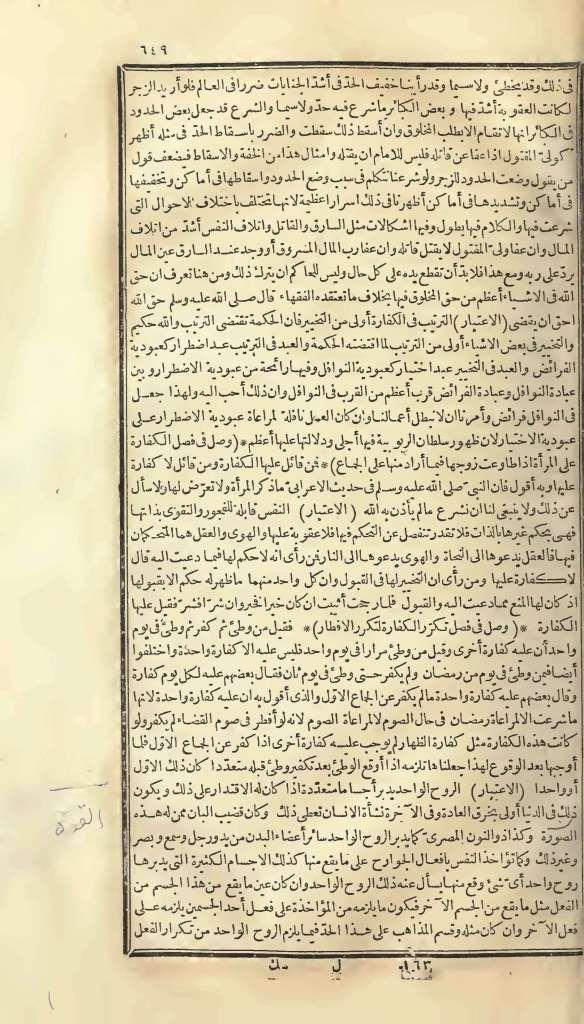 ٦٤٩
فى ذلك وقد يخطئ ولاسيما وقد رأينا خفيف الحدّ فى أشدّ الجنايات ضررا فى العالم فلو أريد الزجر
لكانت العقوبة أشدّ فيها وبعض الكبائر ما شرع فيه حدّ ولاسيما والشرع قد جعل بعض الحدود
فى الكبائر انها لا تقام الا بطلب المخلوق وان أسقط ذلك سقطت والضرر باسقاط الحدّ فى مثله أظهر
كولىّ المقتول اذا عفا عن قاتله فليس للامام ان يقتله وامثال هذا من الخفة والاسقاط فيضعف قول
من يقول وضعت الحدود للزجر ولو شرعنا نتكلم فى سبب وضع الحدود واسقاطها فى أماكن وتخفيفها
فى أماكن وتشديدها فى أماكن أظهرنا فى ذلك اسرارا عظيمة لانها تختلف باختلاف الاحوال التى
شرعت فيها والكلام فيها يطول وفيها اشكالات مثل السارق والقاتل واتلاف النفس أشدّ من اتلاف
المال وان عفا ولىّ المقتول لا يقتل قاتله وان عفا رب المال المسروق أو وجد عند السارق عين المال
يردّ على ربه ومع هذا فلابدّ أن تقطع يده على كل حال وليس للحاكم ان يترك ذلك ومن هنا تعرف ان حق
الله فى الاشياء أعظم من حق المخلوق فيها بخلاف ما تعتقده الفقهاء قال صلى الله عليه وسلم حق الله
احق ان يقضى (الاعتبار) الترتيب فى الكفارة أولى من التخيير فان الحكمة تقتضى الترتيب والله حكيم
والتخيير فى بعض الاشياء أولى من الترتيب لما اقتضته الحكمة والعبد فى الترتيب عبد اضطرار كعبودية
الفرائض والعبد فى التخيير عبد اختيار كعبودية النوافل وفيها رائحة من عبودية الاضطرار وبين
عبادة النوافل وعبادة الفرائض فرق أعظم من القرب فى النوافل وان ذلك أحب اليه ولهذا جعل
فى النوافل فرائض وأمرنا ان لا نبطل أعمالنا وان كان العمل نافلة لمراعاة عبودية الاضطرار على
عبودية الاختيار لان ظهور سلطان الربوبية فيها أجلى ودلالتها عليها أعظم * (وصل فى فصل الكفارة
على المرأة اذا طاوعت زوجها فيما أراد منها على الجماع) * فمن قائل عليها الكفارة ومن قائل لا كفارة
عليها وبه أقول فان النبىّ صلى الله عليه وسلم فى حديث الاعرابى ما ذكر المرأة ولا تعرّض لها ولا سأل
عن ذلك ولا ينبغى لنا ان نشرع ما لم يأذن به الله (الاعتبار) النفس قابلة للفجور والتقوى بذاتها
فهى بحكم غيرها بالذات فلا تقدر تنفصل عن التحكم فيها فلا عقوبة عليها والهوى والعقل هما المتحكمان
فيها فالعقل يدعوها الى النجاة والهوى يدعوها الى النار فمن رأى انه لا حكم لها فيما دعيت اليه قال
لا كفارة عليها ومن رأى ان التخيير لها فى القبول وان كل واحد منهما ما ظهر له حكم الا بقبولها
اذ كان لها المنع مما دعيت اليه والقبول فلما رجحت أثيبت ان كان خيرا فخير وان شرّا فشرّ فقيل عليها
الكفارة * (وصل فى فصل تكرّر الكفارة لتكرر الافطار) * فقيل من وطئ ثم كفر ثم وطئ فى يوم
واحد أن عليه كفارة أخرى وقيل من وطئ مرارا فى يوم واحد فليس عليه الا كفارة واحدة واختلفوا
أيضا فيمن وطئ فى يوم من رمضان ولم يكفر حتى وطئ فى يوم ثان فقال بعضهم عليه لكل يوم كفارة
وقال بعضهم عليه كفارة واحدة ما لم يكفر عن الجماع الاوّل والذى أقول به ان عليه كفارة واحدة لانها
ما شرعت الا لمراعاة رمضان فى حال الصوم لا لمراعاة الصوم لانه لو أفطر فى صوم القضاء لم يكفر ولو
كانت هذه الكفارة مثل كفارة الظهار لم يوجب عليه كفارة أخرى اذا كفر عن الجماع الاوّل فلما
أوجبها بعد الوقوع لهذا جعلناها تلزمه اذا أوقع الوطئ بعد تكفير وطئ قبله متعدّدا كان ذلك الاوّل
أو واحدا (الاعتبار) الروح الواحد يدبر أجساما متعدّدة اذا كان له الاقتدار على ذلك ويكون
ذلك فى الدنيا لولى بخرق العادة وفى الآخرة نشأة الانسان تعطى ذلك وكان قضيب البان ممن له هذه
الصورة وكذا ذو النون المصرى كما يدبر الروح الواحد سائر أعضاء البدن من يد ورجل وسمع وبصر
وغير ذلك وكما تؤاخذ النفس بافعال الجوارح على ما يقع منها كذلك الاجسام الكثيرة التى يدبرها
روح واحد أىّ شئ وقع منها يسأل عنه ذلك الروح الواحد وان كان عين ما يقع من هذا الجسم من
الفعل مثل ما يقع من الجسم الآخر فيكون ما يلزمه من المؤاخذة على فعل أحد الجسمين يلزمه على
فعل الآخر وان كان مثله وقسم المذاهب على هذا الحدّ فيما يلزم الروح الواحد من تكرار الفعل
١٦٣ ل ك